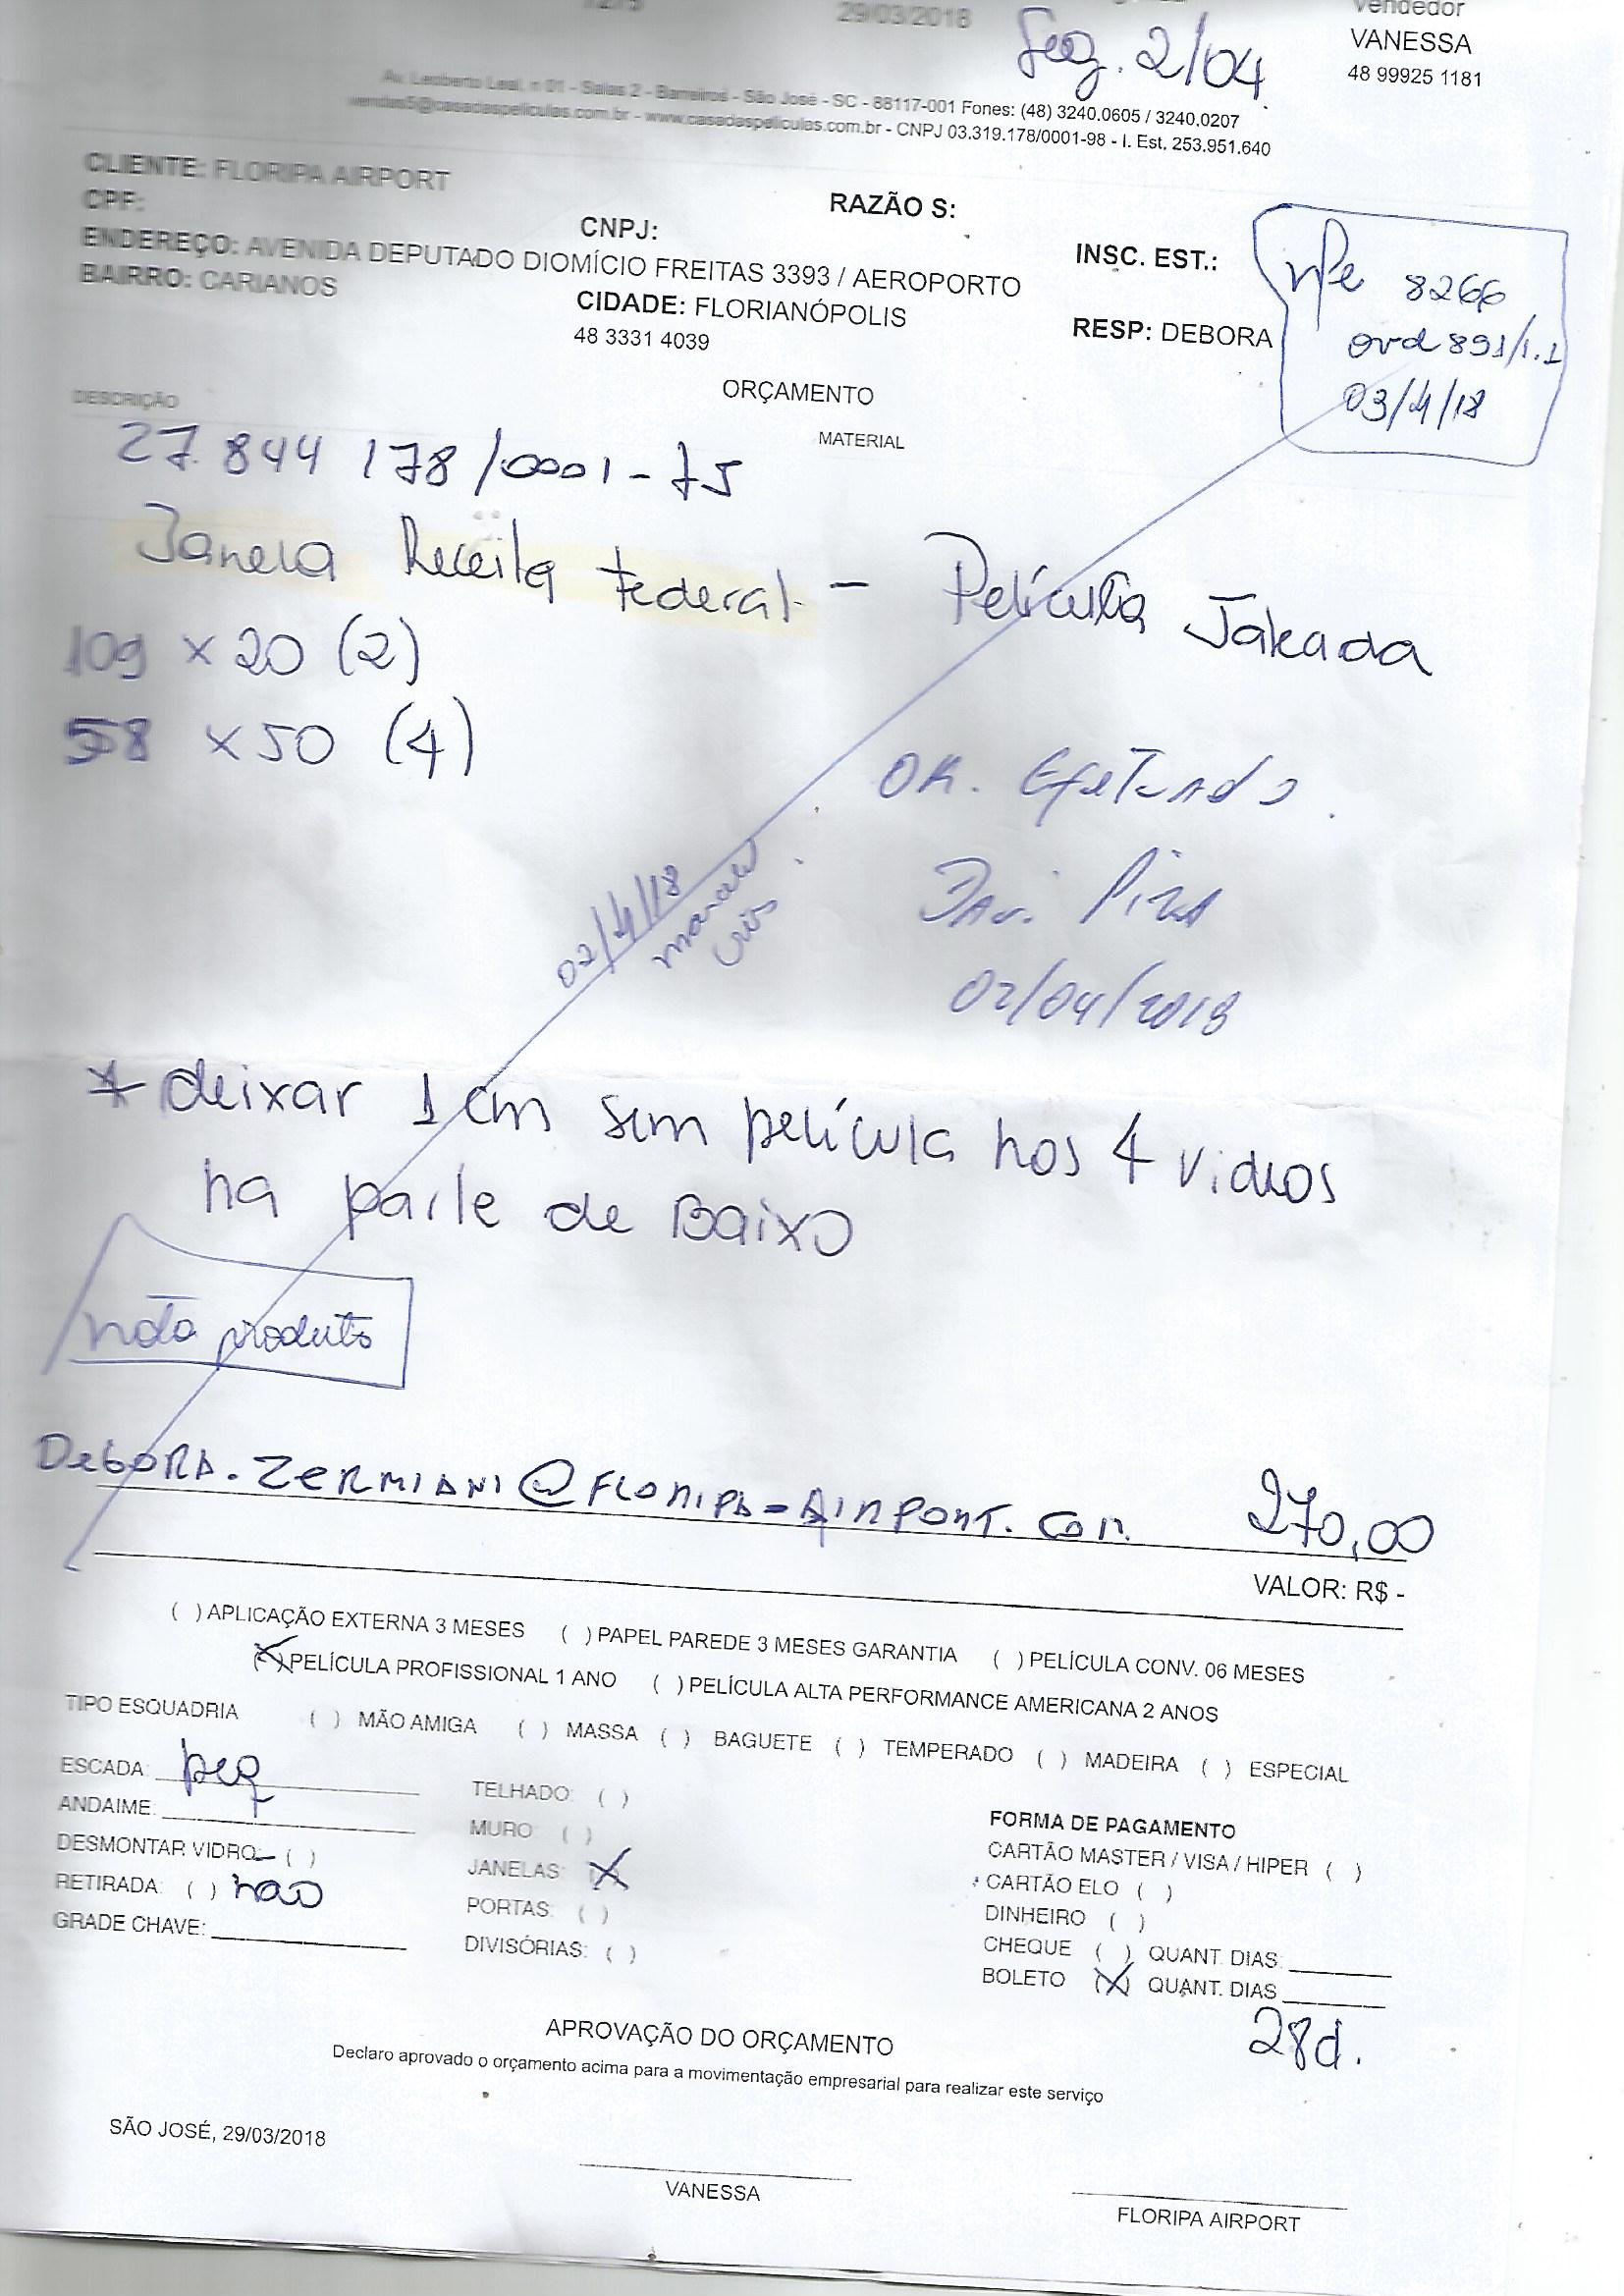 29/03/2018
Vendedor
Seg. 2/04
VANESSA
48 99925 1181
Av. Leoberto Leal, n 01 - Salas 2 - Barreiros - São José - SC - 88117-001 Fones: (48) 3240.0605 / 3240.0207
vendas5@casadaspeliculas.com.br - www.casadaspeliculas.com.br - CNPJ 03.319.178/0001-98 - I. Est. 253.951.640
CLIENTE: FLORIPA AIRPORT
RAZÃO S:
CPF:
CNPJ:
INSC. EST.:
ENDEREÇO: AVENIDA DEPUTADO DIOMÍCIO FREITAS 3393 / AEROPORTO
BAIRRO: CARIANOS
CIDADE: FLORIANÓPOLIS
RESP: DEBORA
48 3331 4039
nfe 8266
ord 891/1.1
03/4/18
ORÇAMENTO
DESCRIÇÃO
MATERIAL
27.844 178/0001-75
Janela Receita Federal - Película Jateada
109 x 20 (2)
58 x 50 (4)
OK. Efetuado.
02/4/18
02/04/2018
* deixar 1 cm sem película nos 4 vidros
na parte de Baixo
nota produto
DEBORA.ZERMIANI@FLORIPA-AIRPORT.COM
270,00
VALOR: R$ -
( ) APLICAÇÃO EXTERNA 3 MESES ( ) PAPEL PAREDE 3 MESES GARANTIA ( ) PELÍCULA CONV. 06 MESES
(X) PELÍCULA PROFISSIONAL 1 ANO ( ) PELÍCULA ALTA PERFORMANCE AMERICANA 2 ANOS
TIPO ESQUADRIA ( ) MÃO AMIGA ( ) MASSA ( ) BAGUETE ( ) TEMPERADO ( ) MADEIRA ( ) ESPECIAL
ESCADA: peq
TELHADO: ( )
ANDAIME:
MURO: ( )
DESMONTAR VIDRO: ( )
JANELAS: (X)
RETIRADA: ( ) não
PORTAS: ( )
GRADE CHAVE:
DIVISÓRIAS: ( )
FORMA DE PAGAMENTO
CARTÃO MASTER / VISA / HIPER ( )
CARTÃO ELO ( )
DINHEIRO ( )
CHEQUE ( ) QUANT. DIAS:
BOLETO (X) QUANT. DIAS
28d.
APROVAÇÃO DO ORÇAMENTO
Declaro aprovado o orçamento acima para a movimentação empresarial para realizar este serviço
SÃO JOSÉ, 29/03/2018
VANESSA
FLORIPA AIRPORT